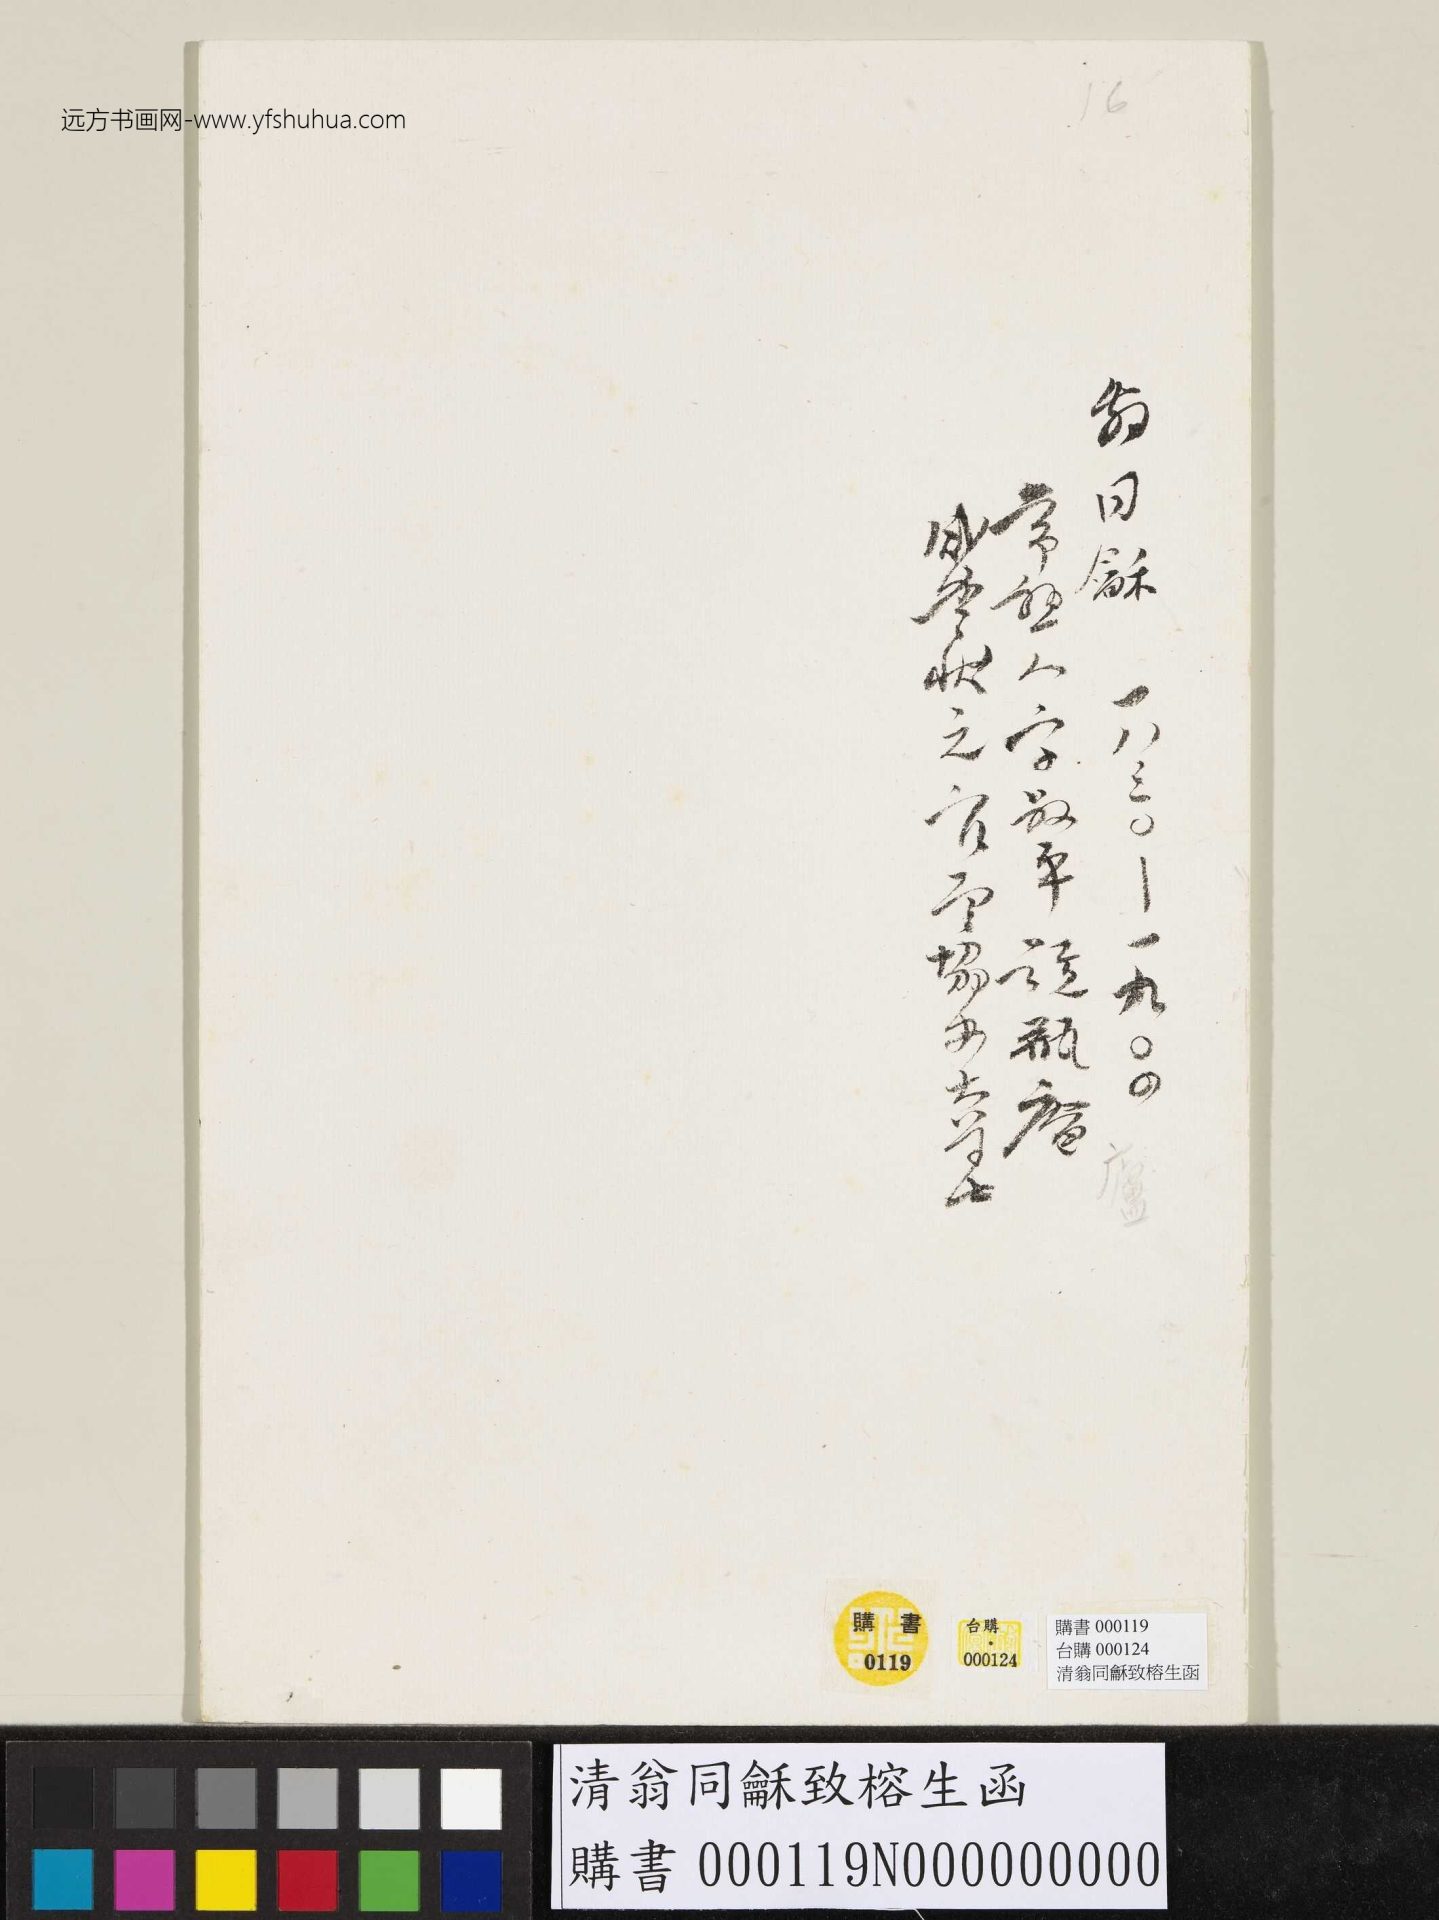 远方书画网-www.yfshuhua.com
16
翁同龢 一八三〇—一九〇四
廬
常熟人字叔平號瓶庵
咸豐狀元官至協辦大學士
購書
0119
台購
000124
購書 000119
台購 000124
清翁同龢致榕生函
清翁同龢致榕生函
購書 000119N000000000